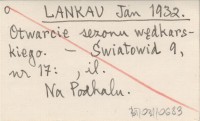 LANKAU Jan 1932.
Otwarcie sezonu wędkars-
kiego. — Światowid 9,
nr 17: , il.
Na Podhalu.